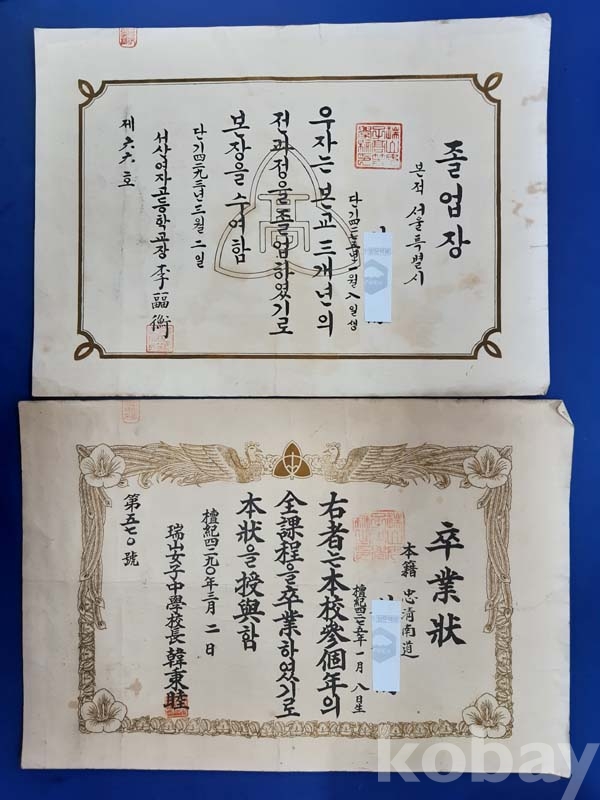 졸업장
본적 서울특별시
단기四二七五년一월八일생
우자는 본교 三개년의
전과정을 졸업하였기로
본장을 수여함
단기四二九三년三월二일
서산여자고등학교장 李 衡
제六六호
高
中
卒業狀
本籍 忠淸南道
檀紀四二七五年一月八日生
右者는本校參個年의
全課程을卒業하였기로
本狀을授與함
檀紀四二九〇年三月二日
瑞山女子中學校長 韓東睦
第五七〇號
kobay